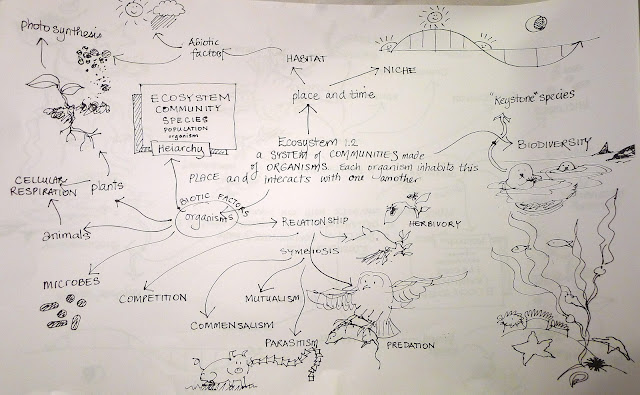 photosynthesis
Abiotic
factors
HABITAT
NICHE
place and time
"Keystone" species
ECOSYSTEM
COMMUNITY
SPECIES
POPULATION
organism
Heiarchy
Ecosystem 1.2
a SYSTEM of COMMUNITIES made
of ORGANISMS. Each organism inhabits this
PLACE and interacts with one another
BIODIVERSITY
CELLULAR
RESPIRATION
plants
BIOTIC FACTORS
organisms
animals
RELATIONSHIP
HERBIVORY
SYMBIOSIS
MICROBES
COMPETITION
MUTUALISM
COMMENSALISM
PARASITISM
PREDATION